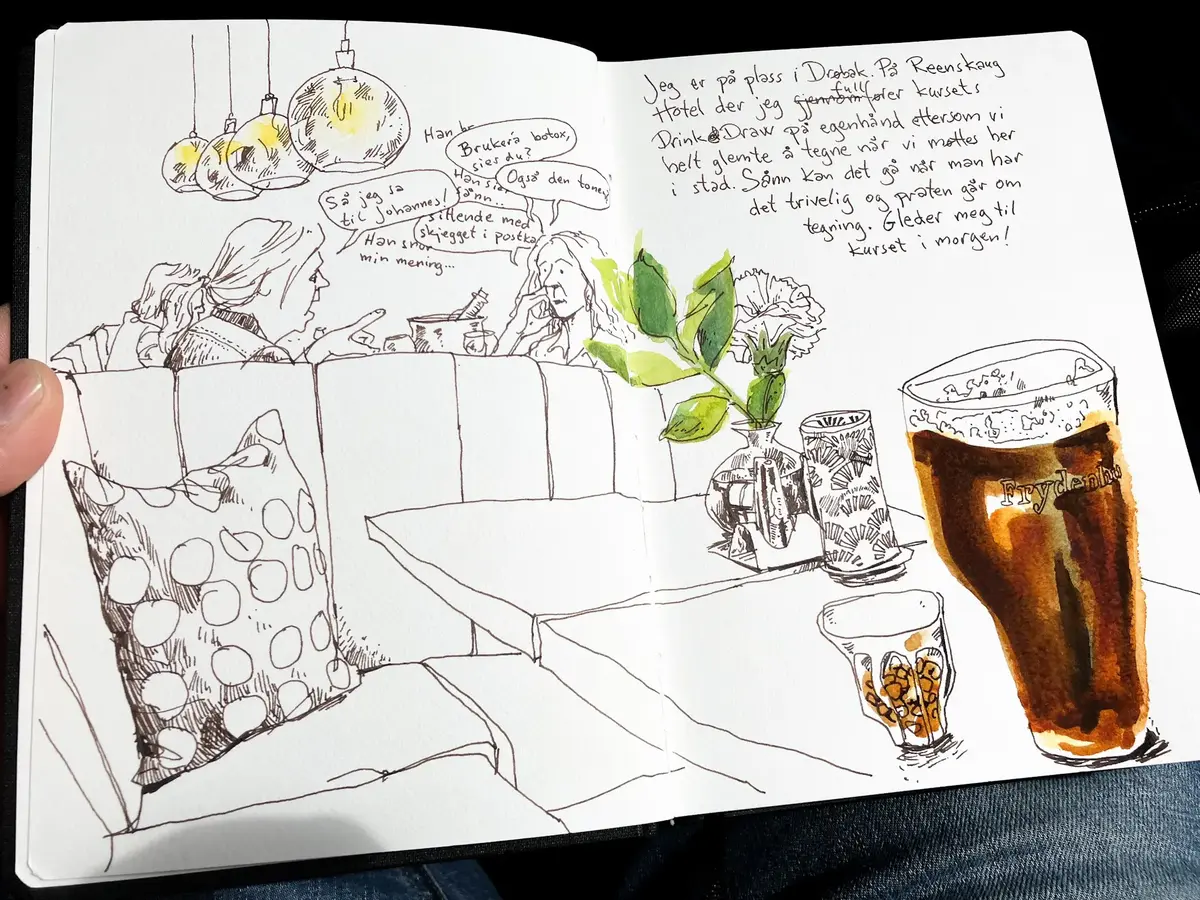 Han
Brukera botox,
sies du?
Han sier
sånn..
Også den tonen
Så jeg sa
til Johannes!
sittende med
skjegget i postka
Han snor
min mening...
Jeg er på plass i Drøbak. På Reenskaug
Hotel der jeg gjennomfører kursets
full
Drink & Draw på egenhånd ettersom vi
helt glemte å tegne når vi møttes her
i stad. Sånn kan det gå når man har
det trivelig og praten går om
tegning. Gleder meg til
kurset i morgen!
Frydenlu